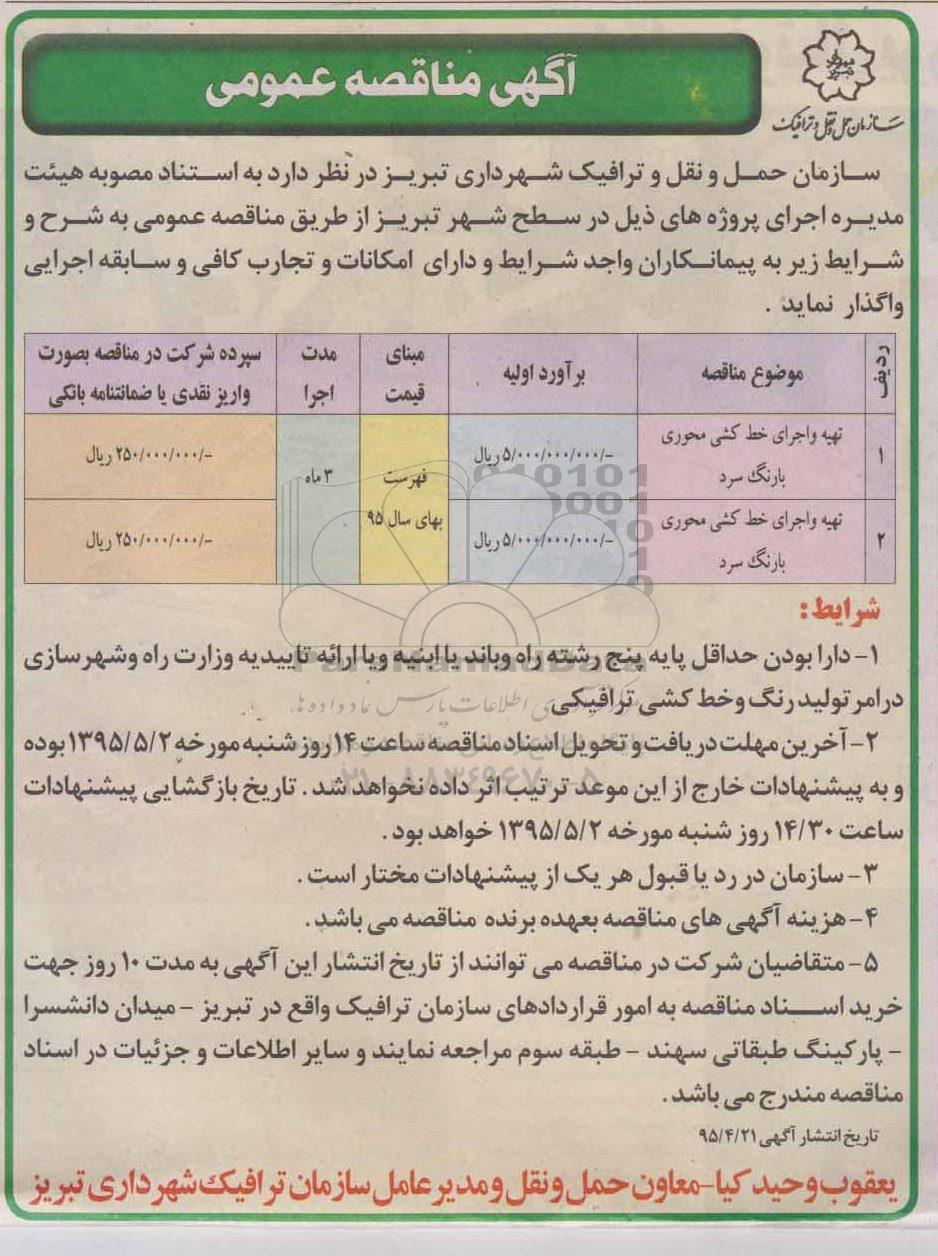 آگهی مناقصه عمومی
سازمان حمل و نقل و ترافیک
سازمان حمل و نقل و ترافیک شهرداری تبریز در نظر دارد به استناد مصوبه هیئت
مدیره اجرای پروژه های ذیل در سطح شهر تبریز از طریق مناقصه عمومی به شرح و
شرایط زیر به پیمانکاران واجد شرایط و دارای امکانات و تجارب کافی و سابقه اجرایی
واگذار نماید .
ردیف موضوع مناقصه برآورد اولیه مبنای قیمت مدت اجرا سپرده شرکت در مناقصه بصورت واریز نقدی یا ضمانتنامه بانکی
۱ تهیه واجرای خط کشی محوری بارنگ سرد ۵/۰۰۰/۰۰۰/۰۰۰/- ریال فهرست بهای سال ۹۵ ۳ ماه ۲۵۰/۰۰۰/۰۰۰/- ریال
۲ تهیه واجرای خط کشی محوری بارنگ سرد ۵/۰۰۰/۰۰۰/۰۰۰/- ریال ۲۵۰/۰۰۰/۰۰۰/- ریال
شرایط :
۱- دارا بودن حداقل پایه پنج رشته راه وباند یا ابنیه ویا ارائه تاییدیه وزارت راه وشهرسازی
درامر تولید رنگ وخط کشی ترافیکی
۲- آخرین مهلت دریافت و تحویل اسناد مناقصه ساعت ۱۴ روز شنبه مورخه ۱۳۹۵/۵/۲ بوده
و به پیشنهادات خارج از این موعد ترتیب اثر داده نخواهد شد . تاریخ بازگشایی پیشنهادات
ساعت ۱۴/۳۰ روز شنبه مورخه ۱۳۹۵/۵/۲ خواهد بود .
۳- سازمان در رد یا قبول هر یک از پیشنهادات مختار است .
۴- هزینه آگهی های مناقصه بعهده برنده مناقصه می باشد .
۵- متقاضیان شرکت در مناقصه می توانند از تاریخ انتشار این آگهی به مدت ۱۰ روز جهت
خرید اسناد مناقصه به امور قراردادهای سازمان ترافیک واقع در تبریز - میدان دانشسرا
- پارکینگ طبقاتی سهند - طبقه سوم مراجعه نمایند و سایر اطلاعات و جزئیات در اسناد
مناقصه مندرج می باشد .
تاریخ انتشار آگهی ۹۵/۴/۲۱
یعقوب وحید کیا-معاون حمل و نقل و مدیر عامل سازمان ترافیک شهرداری تبریز